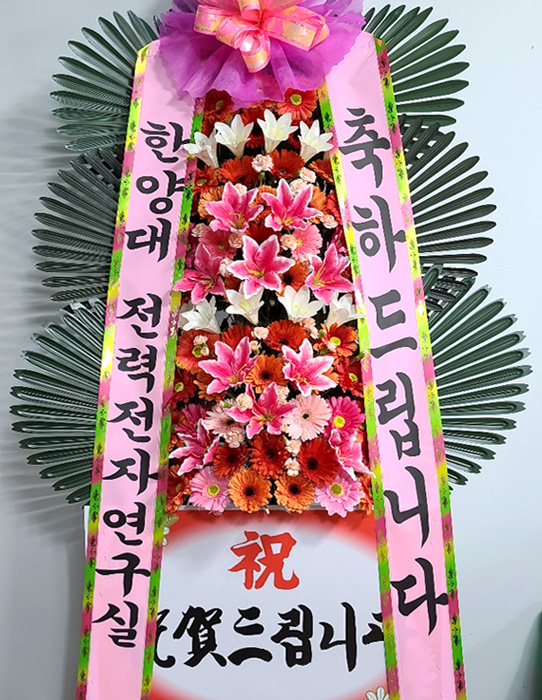 한양대 전력전자연구실
축하드립니다
祝
祝賀드립니다